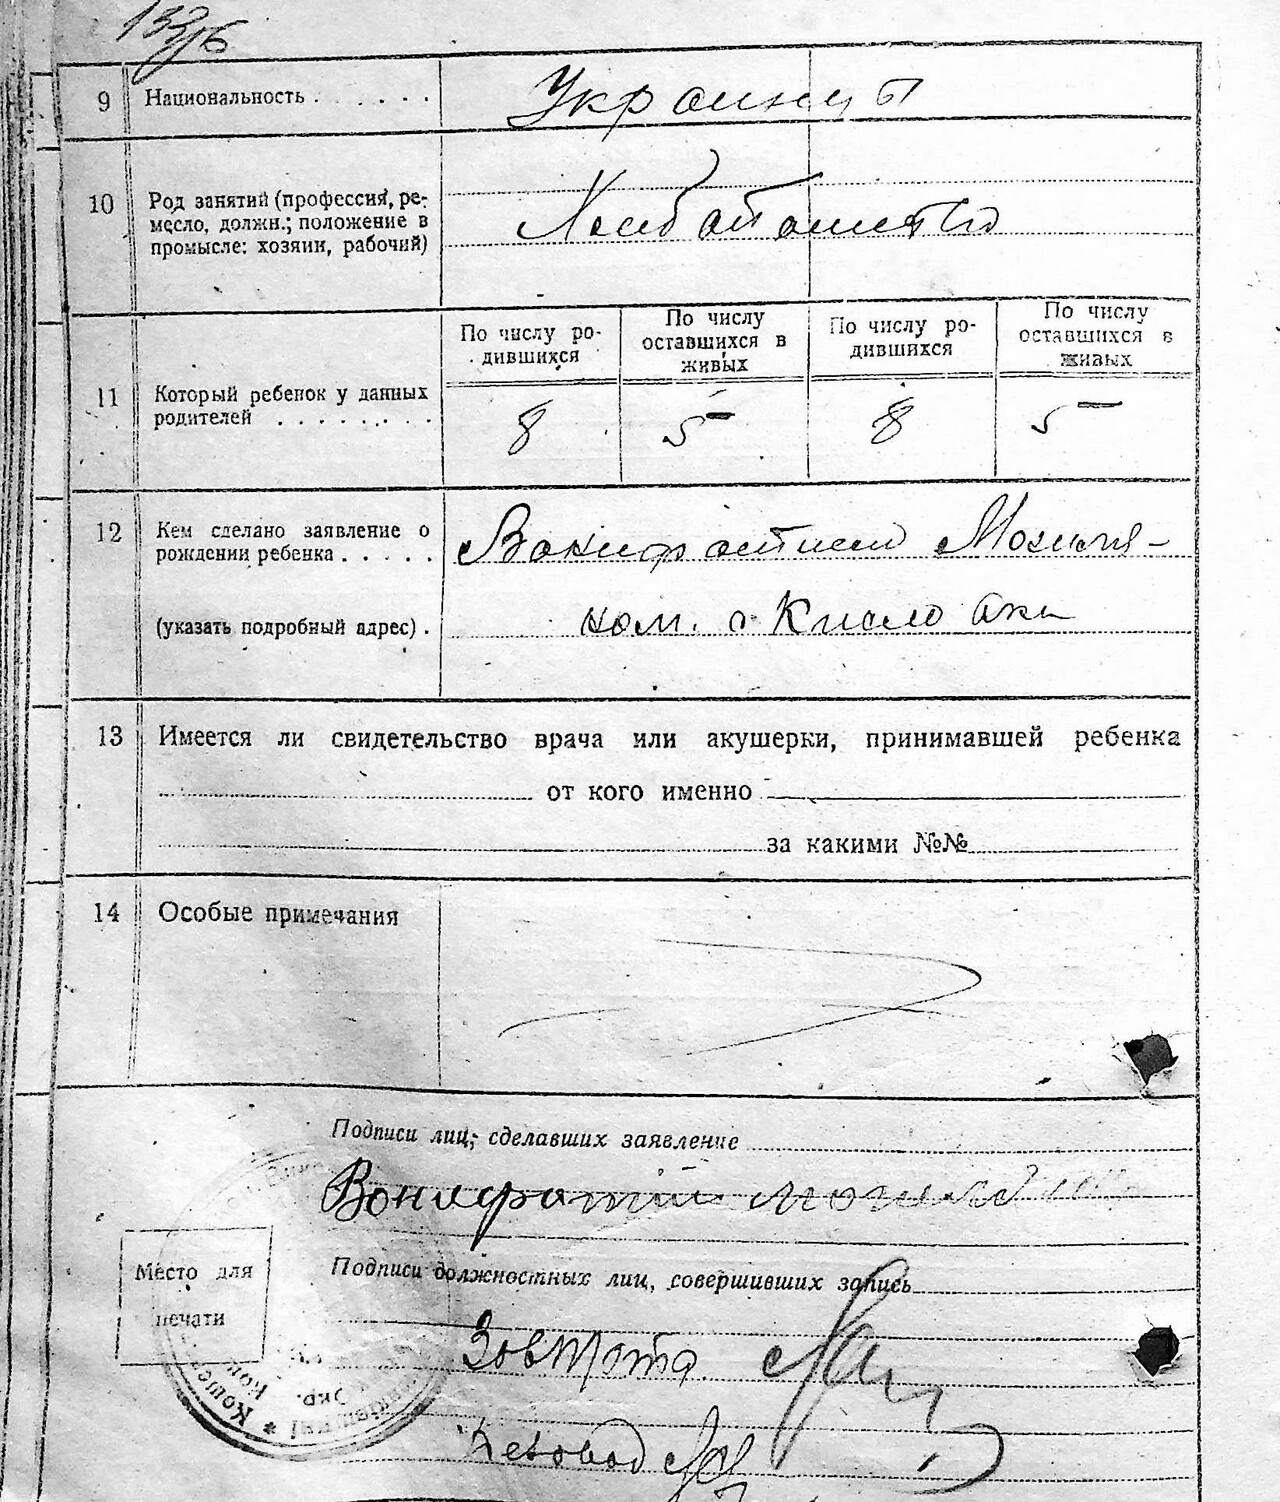 9 Национальность . . . . . . Украинцы
10 Род занятий (профессия, ре-
месло, должн.; положение в
промысле: хозяин, рабочий)
Хлебопашество
По числу ро-
дившихся
По числу
оставшихся в
живых
По числу ро-
дившихся
По числу
оставшихся в
живых
11 Который ребенок у данных
родителей . . . . . . . .
8 5 8 5
12 Кем сделано заявление о
рождении ребенка . . . . .
(указать подробный адрес) .
Вонифатием Могиля-
ком. с. Кисло
13 Имеется ли свидетельство врача или акушерки, принимавшей ребенка
от кого именно
за какими №№
14 Особые примечания
Подписи лиц, сделавших заявление
Вонифатий
Подписи должностных лиц, совершивших запись
Место для
печати
Завстола